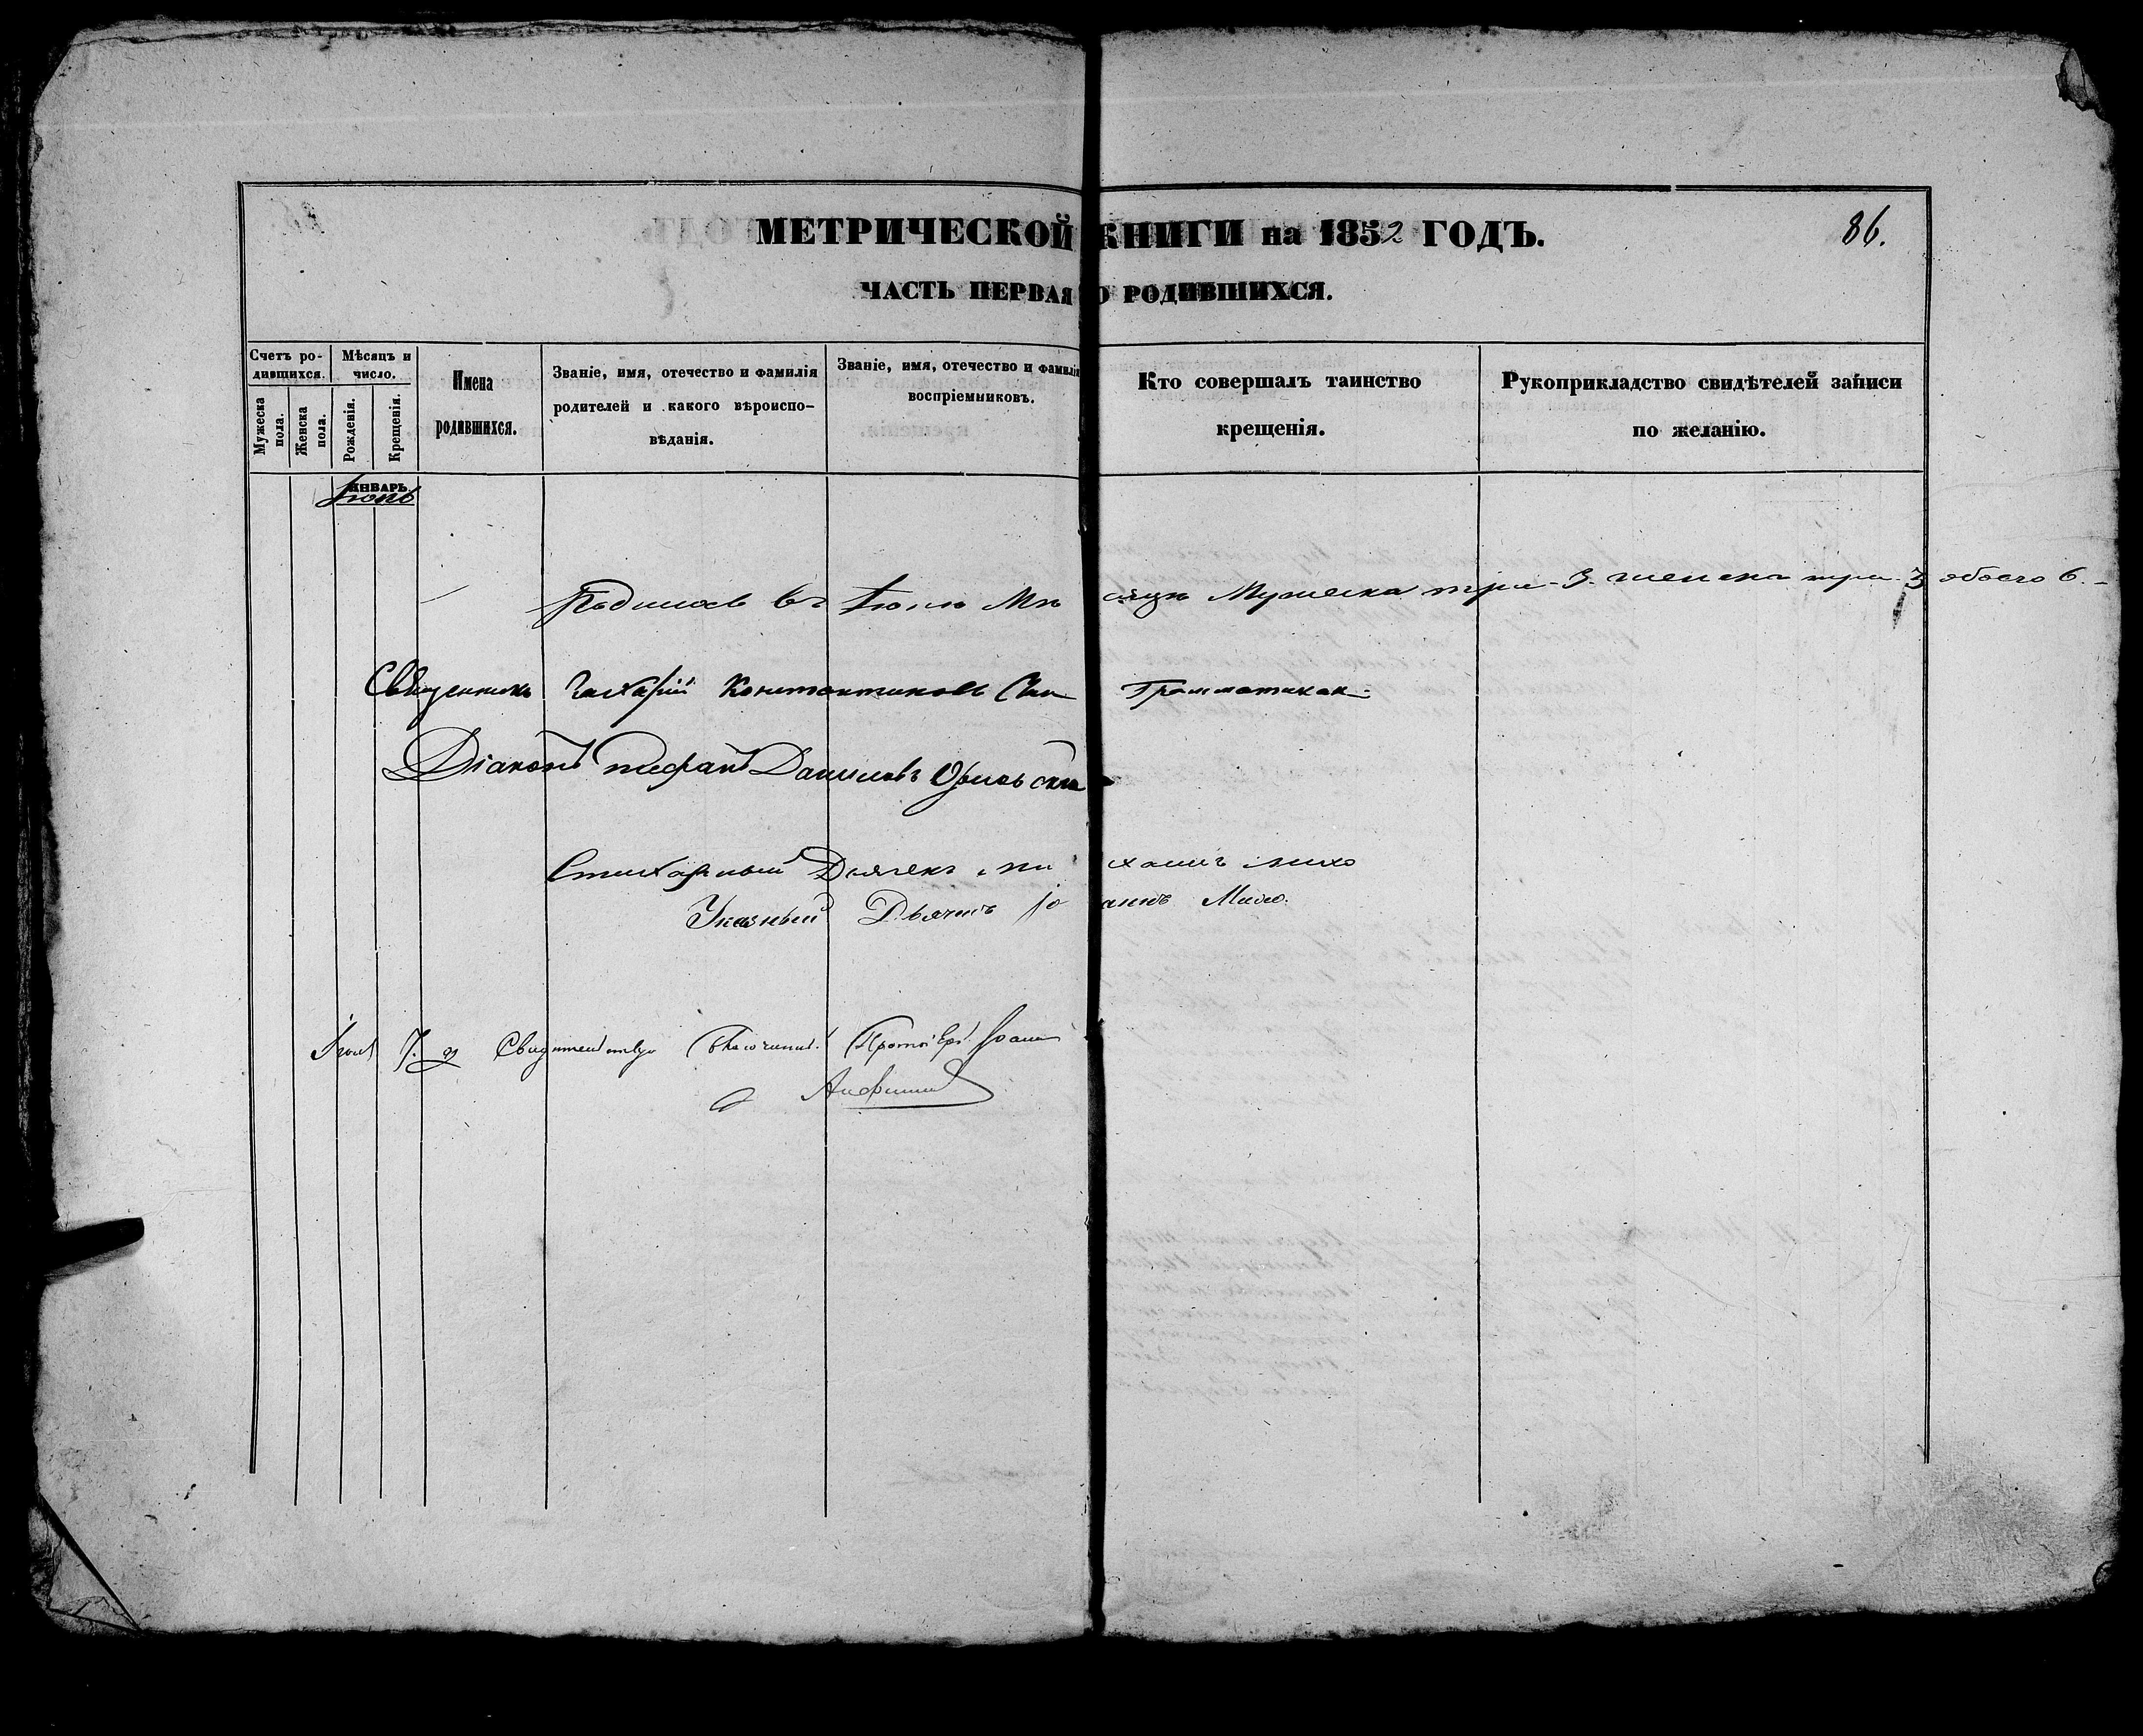 МЕТРИЧЕСКОЙ КНИГИ на 1852 ГОДЪ.
86.
ЧАСТЬ ПЕРВАЯ О РОДИВШИХСЯ.
Счетъ ро-
дившихся.
Мужеска
пола.
Женска
пола.
Мѣсяцъ и
число.
Рожденія.
Крещенія.
Имена
родившихся.
Званіе, имя, отечество и фамилія
родителей и какого вѣроиспо-
вѣданія.
Званіе, имя, отечество и фамилія
воспріемниковъ.
Кто совершалъ таинство
крещенія.
Рукоприкладство свидѣтелей записи
по желанію.
ЯНВАРЬ.
Родилось въ Мѣсяцѣ Мужеска три 3. женска три 3 обоего 6.
Священникъ Захарій Константиновъ Грамматикак
Діаконъ Стефанъ Даниловъ
Стихарный
Указный Дьячекъ Іоаннъ
Благочинный Протоіерей Іоаннъ